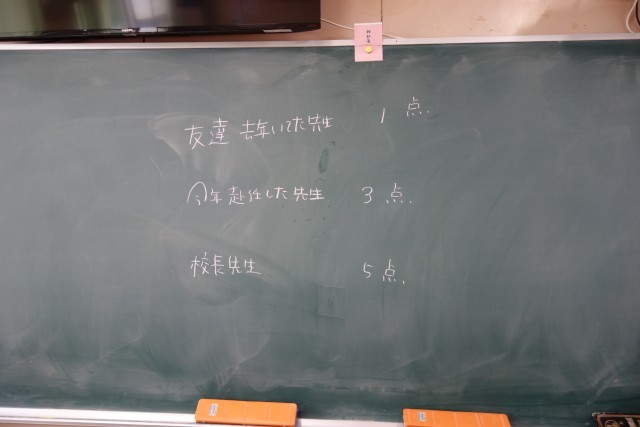 友達 去年いた先生 1点.
今年赴任した先生 3点.
校長先生 5点.